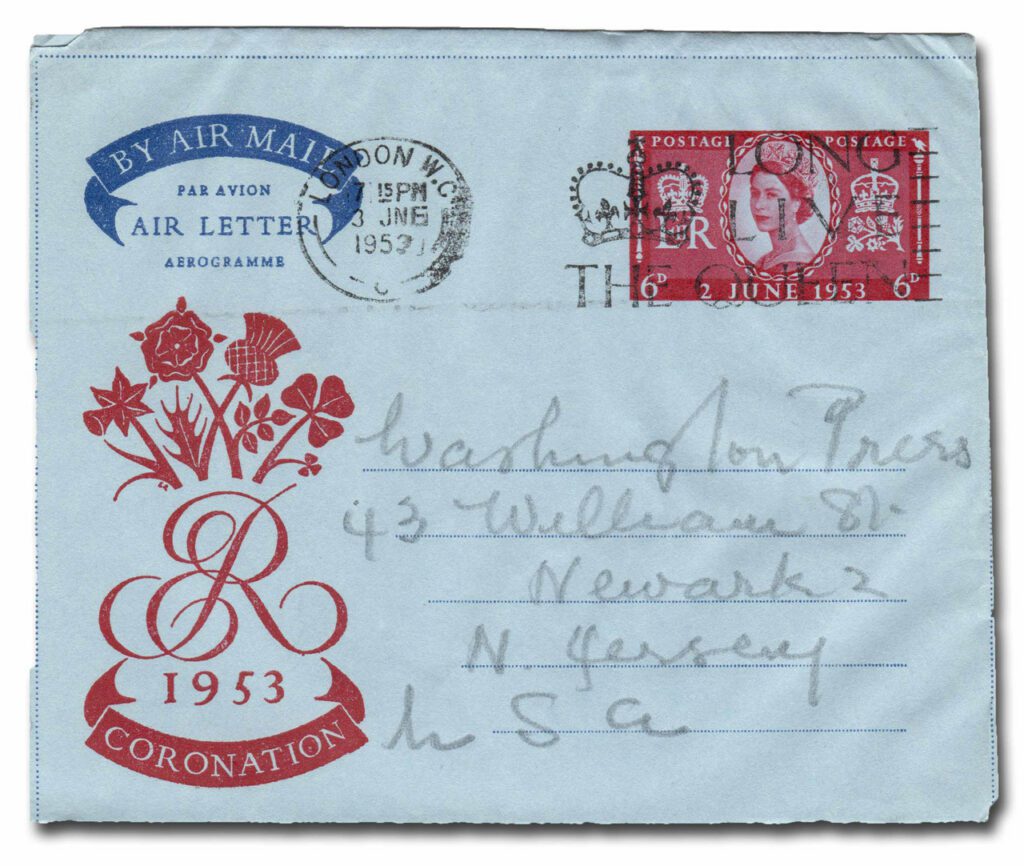 BY AIR MAIL
PAR AVION
AIR LETTER
AEROGRAMME
LONDON W.C.
7 15 PM
3 JNE
1953
C
POSTAGE POSTAGE
E R
6D 2 JUNE 1953 6D
LONG
LIVE
THE QUEEN
Washington Press
43 William St.
Newark 2
N. Jersey
U S A
ER
1953
CORONATION